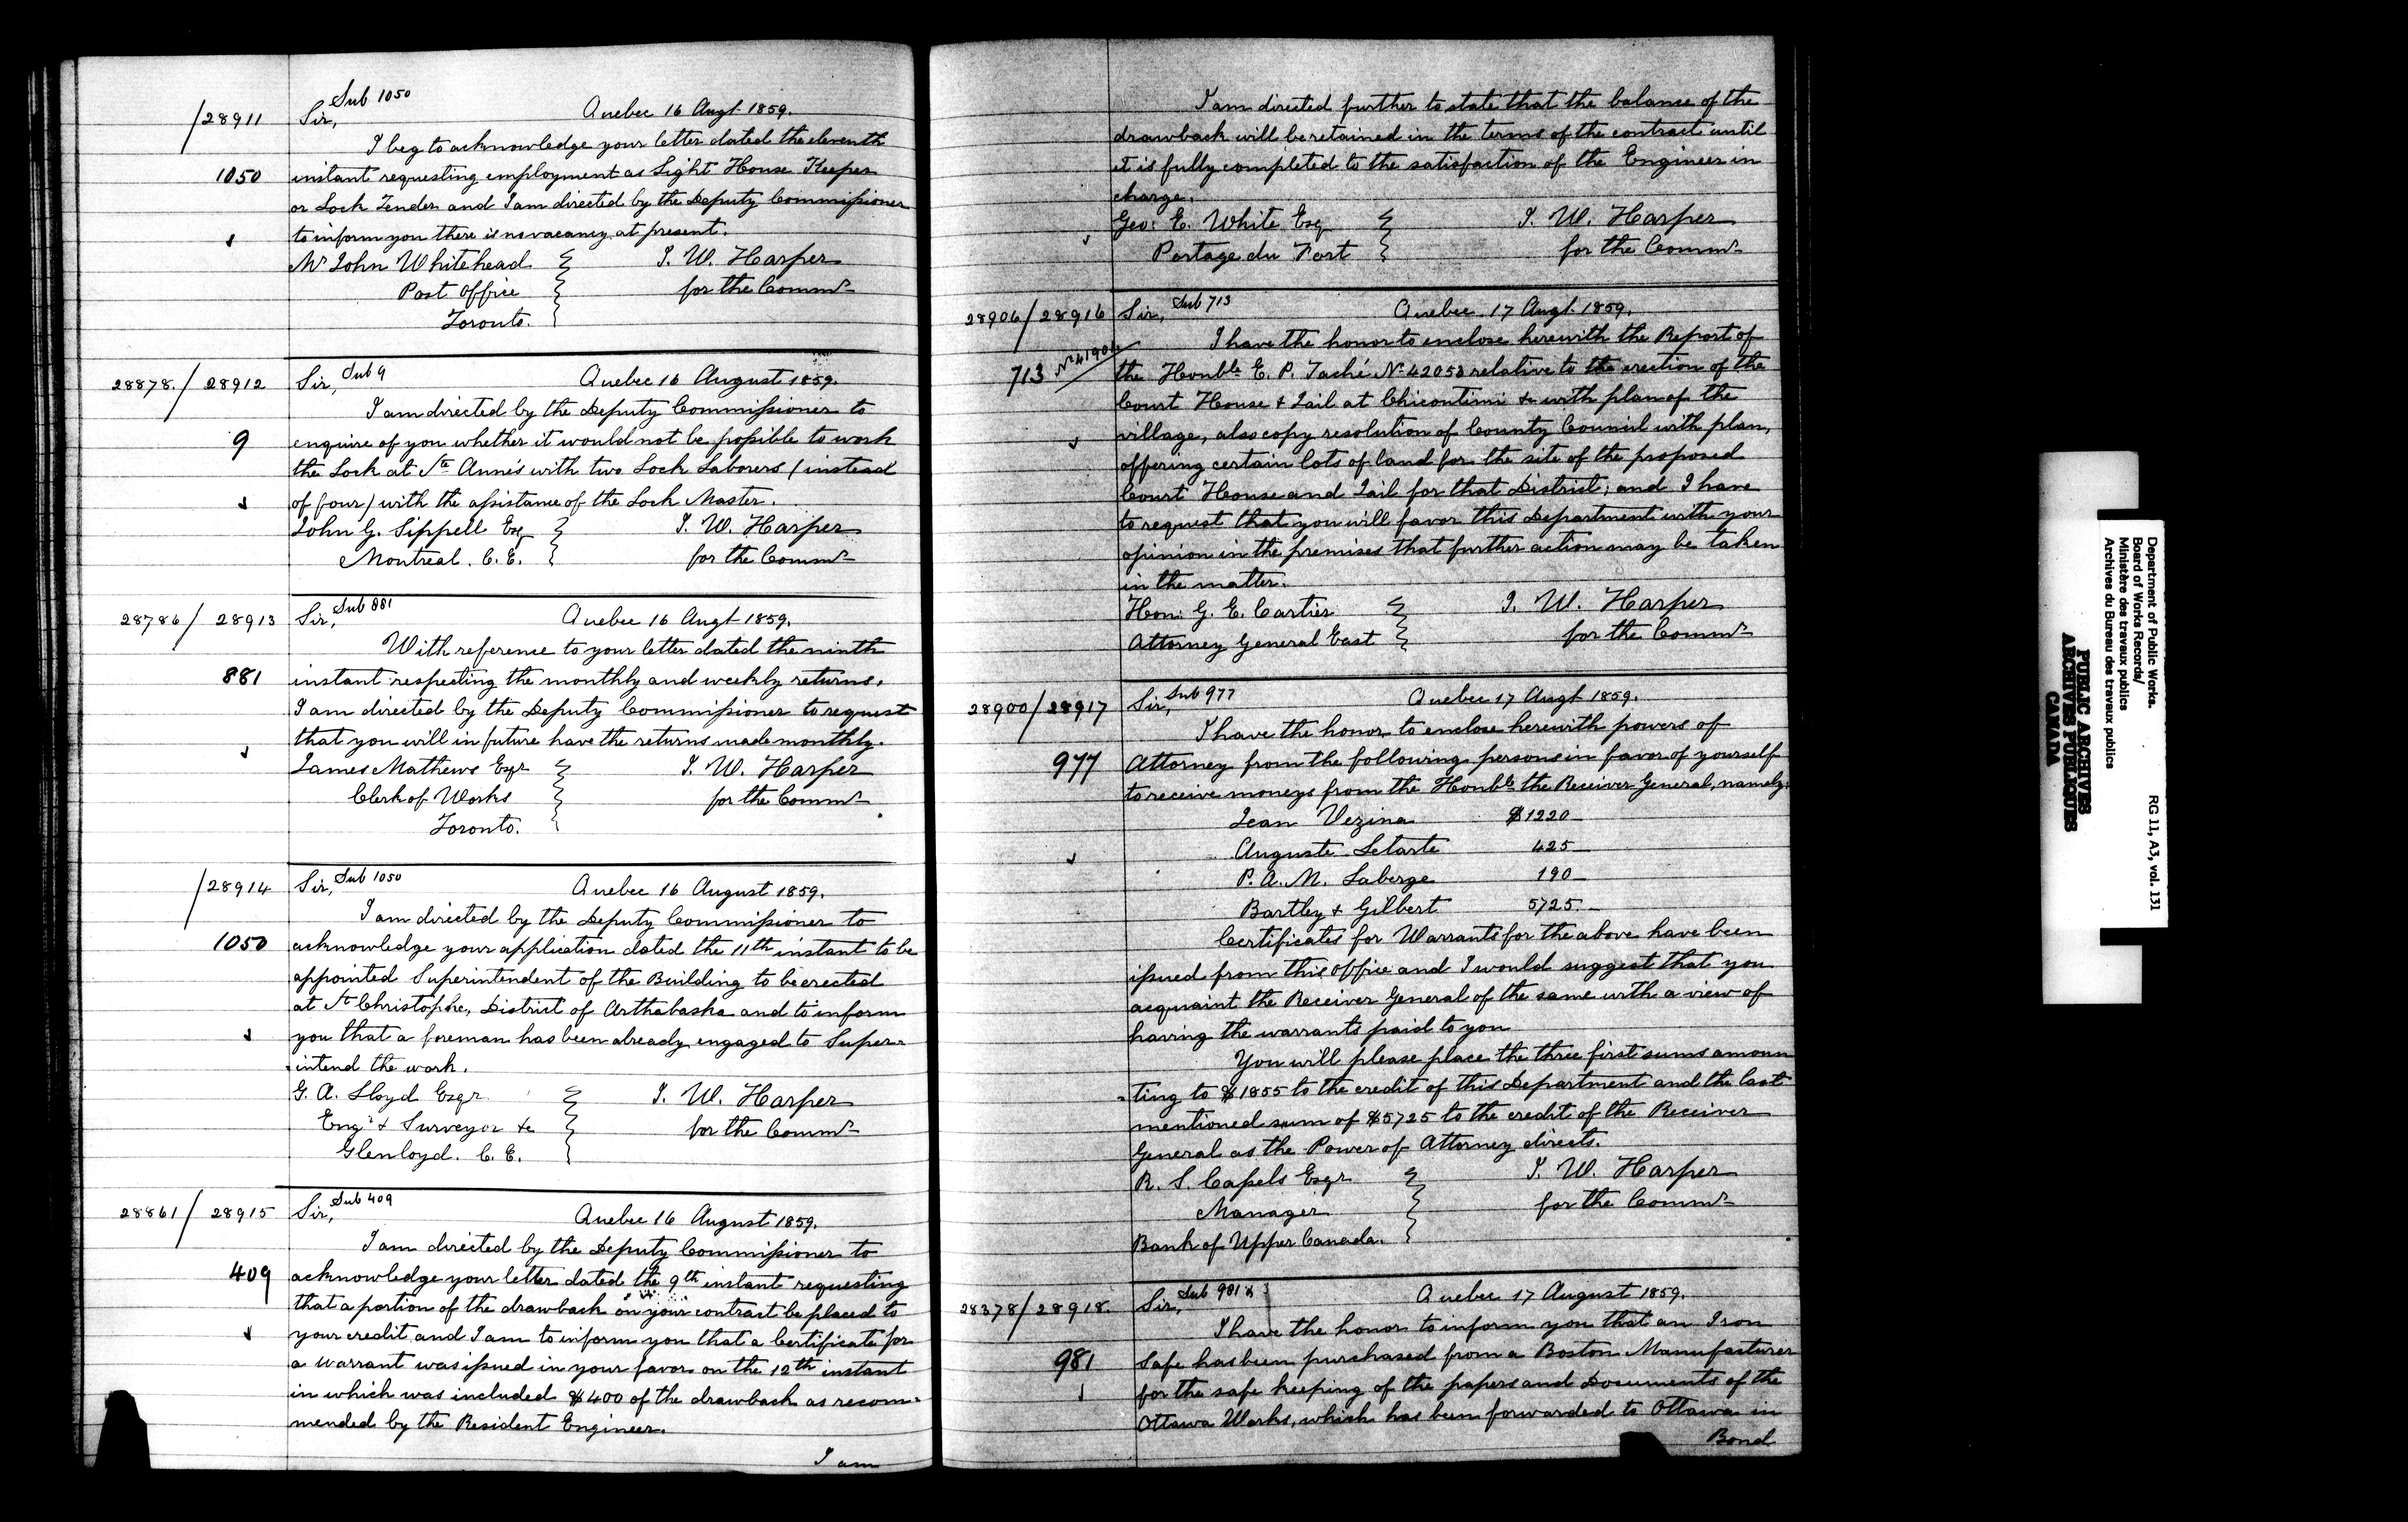 Sub 1050
/28911 Sir, Quebec 16 Augt 1859.
I beg to acknowledge your letter dated the eleventh
1050 instant requesting employment as Light House Keeper
or Lock Tender and I am directed by the Deputy Commissioner
to inform you there is no vacancy at present.
Mr John Whitehead T. W. Harper
Post Office for the Commrs
Toronto.
28878./28912 Sir, Sub 9 Quebec 16 August 1859.
I am directed by the Deputy Commissioner to
9 enquire of you whether it would not be possible to work
the Lock at Ste Anne's with two Lock Laborers (instead
of four) with the assistance of the Lock Master.
John G. Sippell Esq T. W. Harper
Montreal. C. E. for the Commrs
28786/28913 Sir, Sub 881 Quebec 16 Augt 1859.
With reference to your letter dated the ninth
881 instant respecting the monthly and weekly returns,
I am directed by the Deputy Commissioner to request
that you will in future have the returns made monthly.
James Mathews Esqr T. W. Harper
Clerk of Works for the Commrs
Toronto.
/28914 Sir, Sub 1050 Quebec 16 August 1859.
I am directed by the Deputy Commissioner to
1050 acknowledge your application dated the 11th instant to be
appointed Superintendent of the Building to be erected
at St Christophe, District of Arthabaska and to inform
you that a foreman has been already engaged to Super-
-intend the work.
G. A. Lloyd Esqr. T. W. Harper
Engr & Surveyor &c for the Commrs
Glenloyd. C. E.
28861/28915 Sir, Sub 409 Quebec 16 August 1859.
I am directed by the Deputy Commissioner to
409 acknowledge your letter dated the 9th instant requesting
that a portion of the drawback on your contract be placed to
your credit and I am to inform you that a Certificate for
a Warrant was issued in your favor on the 12th instant
in which was included $400 of the drawback as recom-
mended by the Resident Engineer.
I am
I am directed further to state that the balance of the
drawback will be retained in the terms of the contract until
it is fully completed to the satisfaction of the Engineer in
charge.
Geo: E. White Esq T. W. Harper
Portage du Fort for the Commrs
28906/28916 Sir, Sub 713 Quebec 17 Augt 1859.
I have the honor to enclose herewith the Report of
713 No 41904 the Honble E. P. Taché No 42053 relative to the erection of the
Court House & Jail at Chicoutimi &c with plan of the
village, also copy resolution of County Council with plan,
offering certain lots of land for the site of the proposed
Court House and Jail for that District; and I have
to request that you will favor this Department with your
opinion in the premises that further action may be taken
in the matter.
Hon: G. E. Cartier T. W. Harper
Attorney General East for the Commrs
28900/28917 Sir, Sub 977 Quebec 17 Augt 1859.
I have the honor to enclose herewith powers of
977 Attorney from the following persons in favor of yourself
to receive moneys from the Honble the Receiver General, namely;
Jean Vezina $1220
Auguste Letarte 425
P. A. M. Laberge 190
Bartley & Gilbert 5725.
Certificates for Warrants for the above have been
issued from this office and I would suggest that you
acquaint the Receiver General of the same with a view of
having the warrants paid to you
You will please place the three first sums amoun
-ting to $1855 to the credit of this Department and the last
mentioned sum of $5725 to the credit of the Receiver
General as the Power of Attorney directs.
R. S. Capels Esqr T. W. Harper
Manager for the Commrs
Bank of Upper Canada.
28378/28918. Sir, Sub 981 Quebec 17 August 1859.
I have the honor to inform you that an Iron
981 Safe has been purchased from a Boston Manufacturer
for the safe keeping of the papers and Documents of the
Ottawa Works, which has been forwarded to Ottawa in
Bond
Department of Public Works. RG 11, A3, vol. 131
Board of Works Records/
Ministère des travaux publics
Archives du Bureau des travaux publics
PUBLIC ARCHIVES
ARCHIVES PUBLIQUES
CANADA